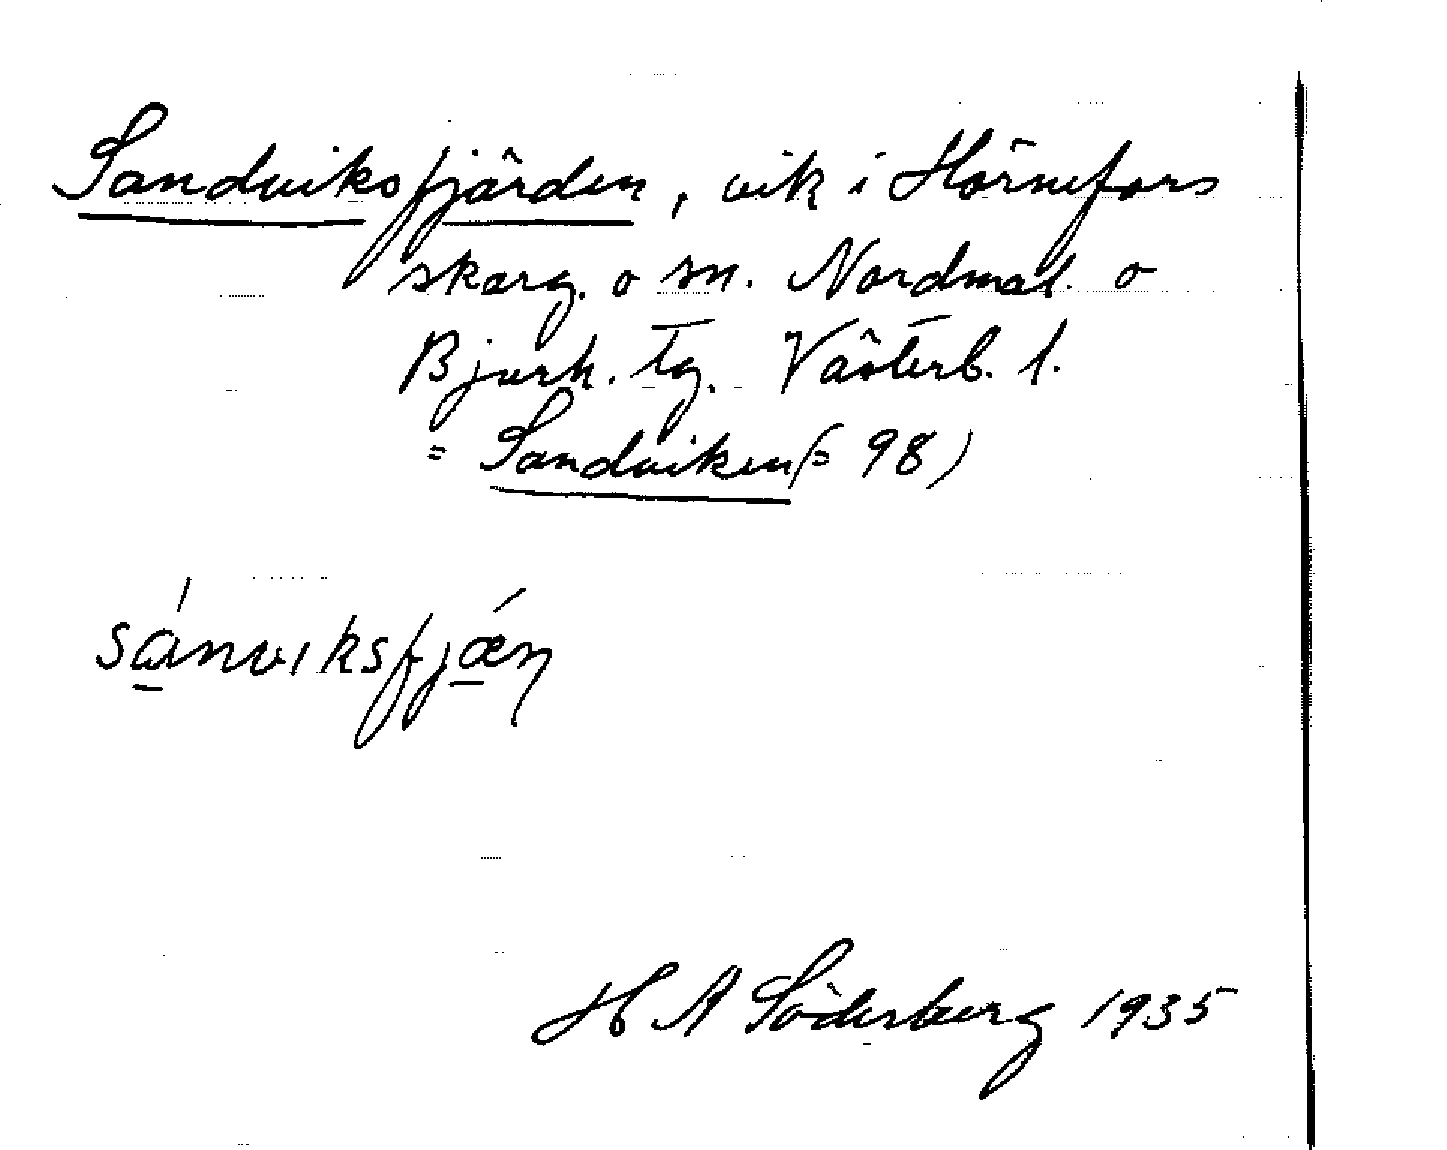 Sandviksfjärden, vik i Hörnefors
skärg. o sn. Nordmal. o
Bjurh. tg. Västerb. l.
= Sandviken (= 98)
sánviksfjǽn
H A Söderberg 1935